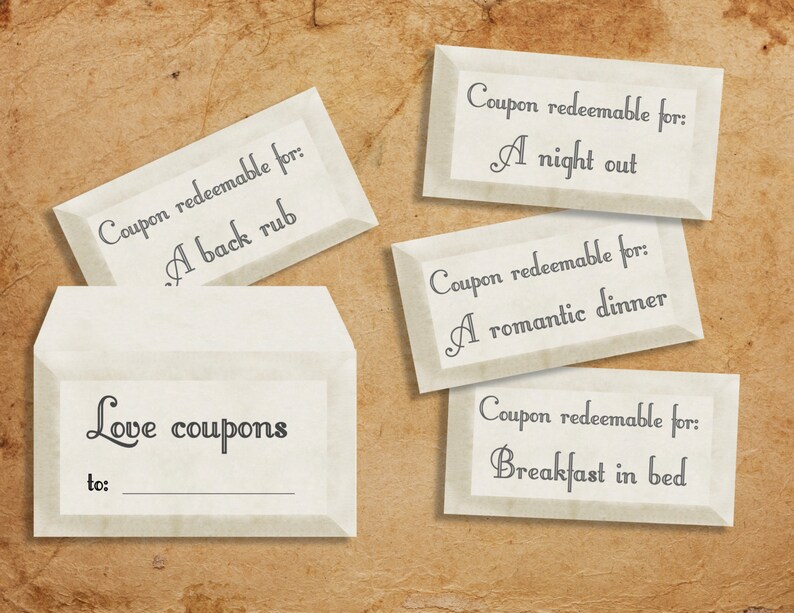 Coupon redeemable for:
A back rub
Love coupons
to:
Coupon redeemable for:
A night out
Coupon redeemable for:
A romantic dinner
Coupon redeemable for:
Breakfast in bed